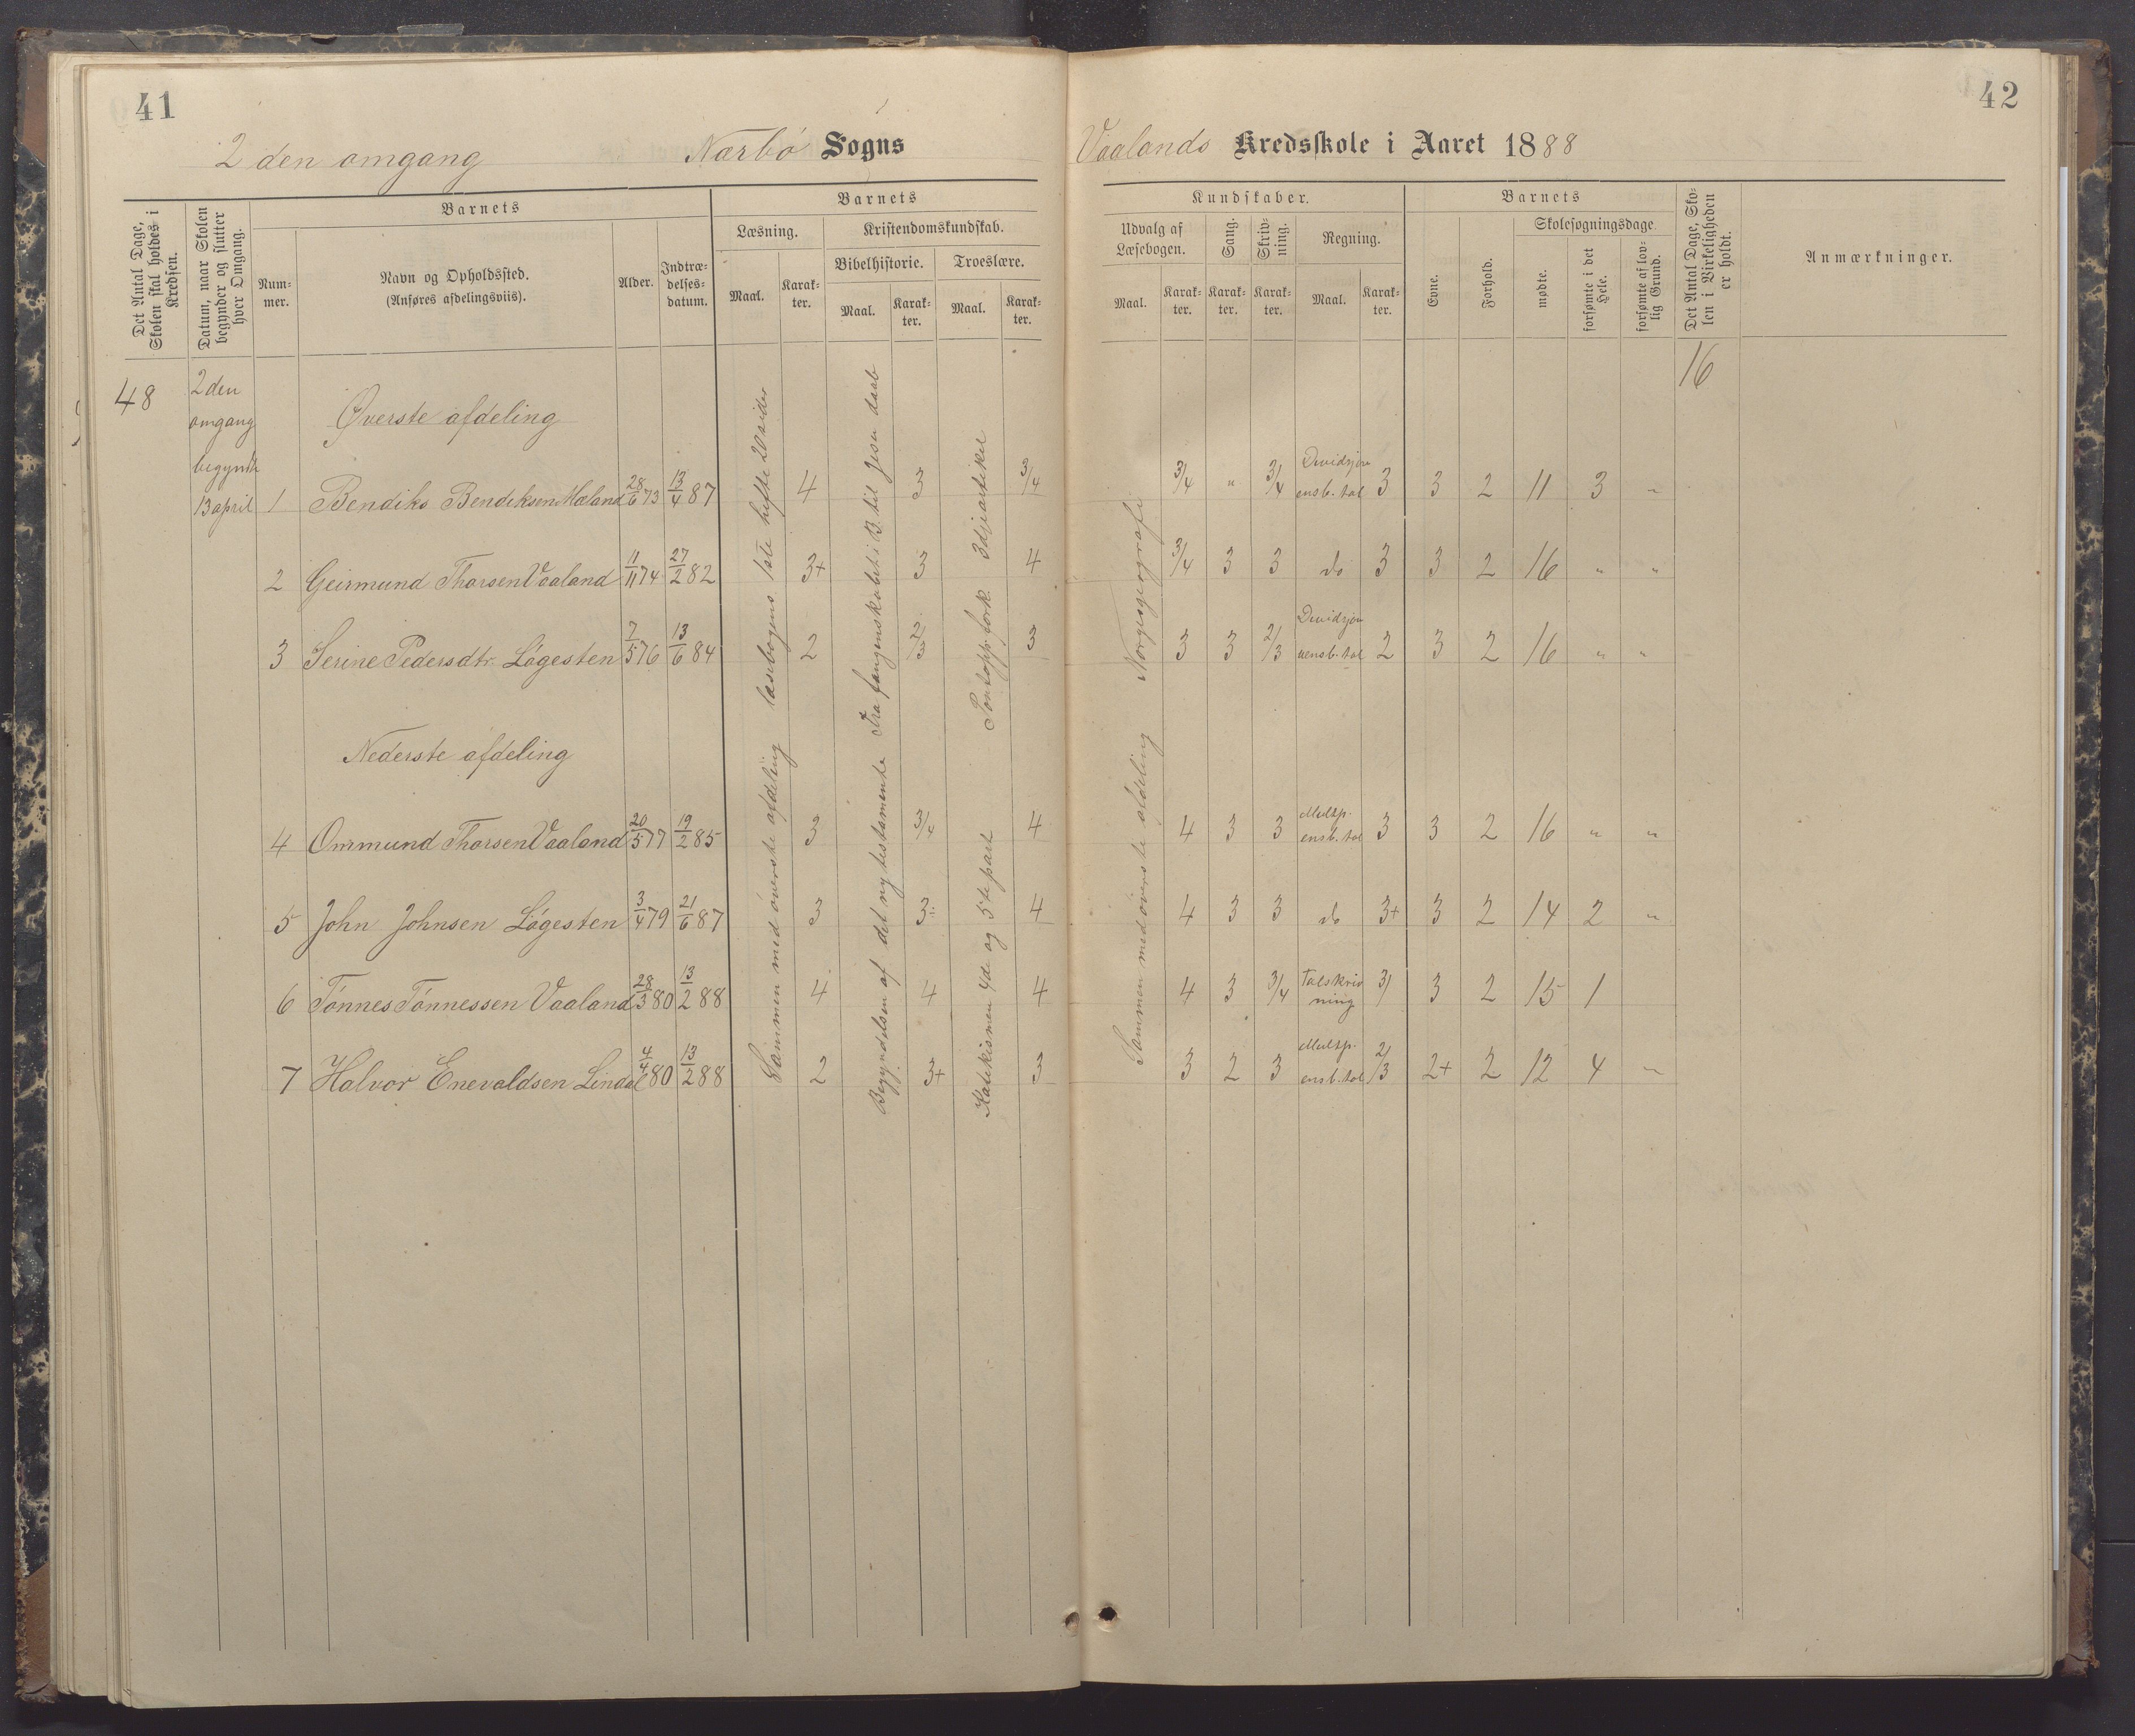 41
2 den omgang Nærbö Sogns
Det Antal Dage, Skolen skal holdes i Kredsen.
Datum, naar Skolen begynder og slutter hver Omgang.
Barnets
Num-
mer.
Navn og Opholdssted.
(Anføres afdelingsviis).
Alder.
Indtræ-
delses-
datum.
Barnets
Læsning.
Kristendomskundskab.
Bibelhistorie.
Troeslære.
Maal.
Karak-
ter.
Maal.
Karak-
ter.
Maal.
Karak-
ter.
48
2den
omgang
begyndte
13 april
Øverste afdeling
1 Bendiks Bendiksen Mæland 28/6 73 13/4 87 4 3 3/4
2 Geirmund Thorsen Vaaland 11/11 74 27/2 82 3+ 3 4
3 Serine Pedersdtr. Lögesten 7/5 76 13/6 84 2 2/3 3
Nederste afdeling
4 Ommund Thorsen Vaaland 20/5 77 19/2 85 3 3/4 4
5 John Johnsen Lögesten 3/4 79 21/6 87 3 3÷ 4
6 Tönnes Tönnessen Vaaland 28/3 80 13/2 88 4 4 4
7 Halvor Enevaldsen Lindal 4/4 80 13/2 88 2 3+ 3
læsebogens 1ste hefte 20 sider
Sammen med överste afdeling
Fra fangenskabet i B. til Jesu daab
Begyndelsen af det ny testamente
Pontopp. fork. 3dje artikel
Katekismen 4de og 5te part
42
Vaalands Kredsskole i Aaret 1888
Kundskaber.
Udvalg af
Læsebogen.
Sang.
Skriv-
ning.
Regning.
Maal.
Karak-
ter.
Karak-
ter.
Karak-
ter.
Maal.
Karak-
ter.
Barnets
Evne.
Forhold.
Skolesøgningsdage
mødte.
forsømte i det
Hele.
forsømte af lov-
lig Grund.
Det Antal Dage, Sko-
len i Virkeligheden
er holdt.
Anmærkninger.
16
3/4 " 3/4 Dividsjon ensb. tal 3 3 2 11 3 "
3/4 3 3 do 3 3 2 16 " "
3 3 2/3 Dividsjon uensb. tal 2 3 2 16 " "
4 3 3 Multp. ensb. tal 3 3 2 16 " "
4 3 3 do 3+ 3 2 14 2 "
4 3 3/4 Talskriv ning 3/ 3 2 15 1
3 2 3 Multp. ensb. tal 2/3 2+ 2 12 4 "
Norgesgeografi
Sammen med överste afdeling